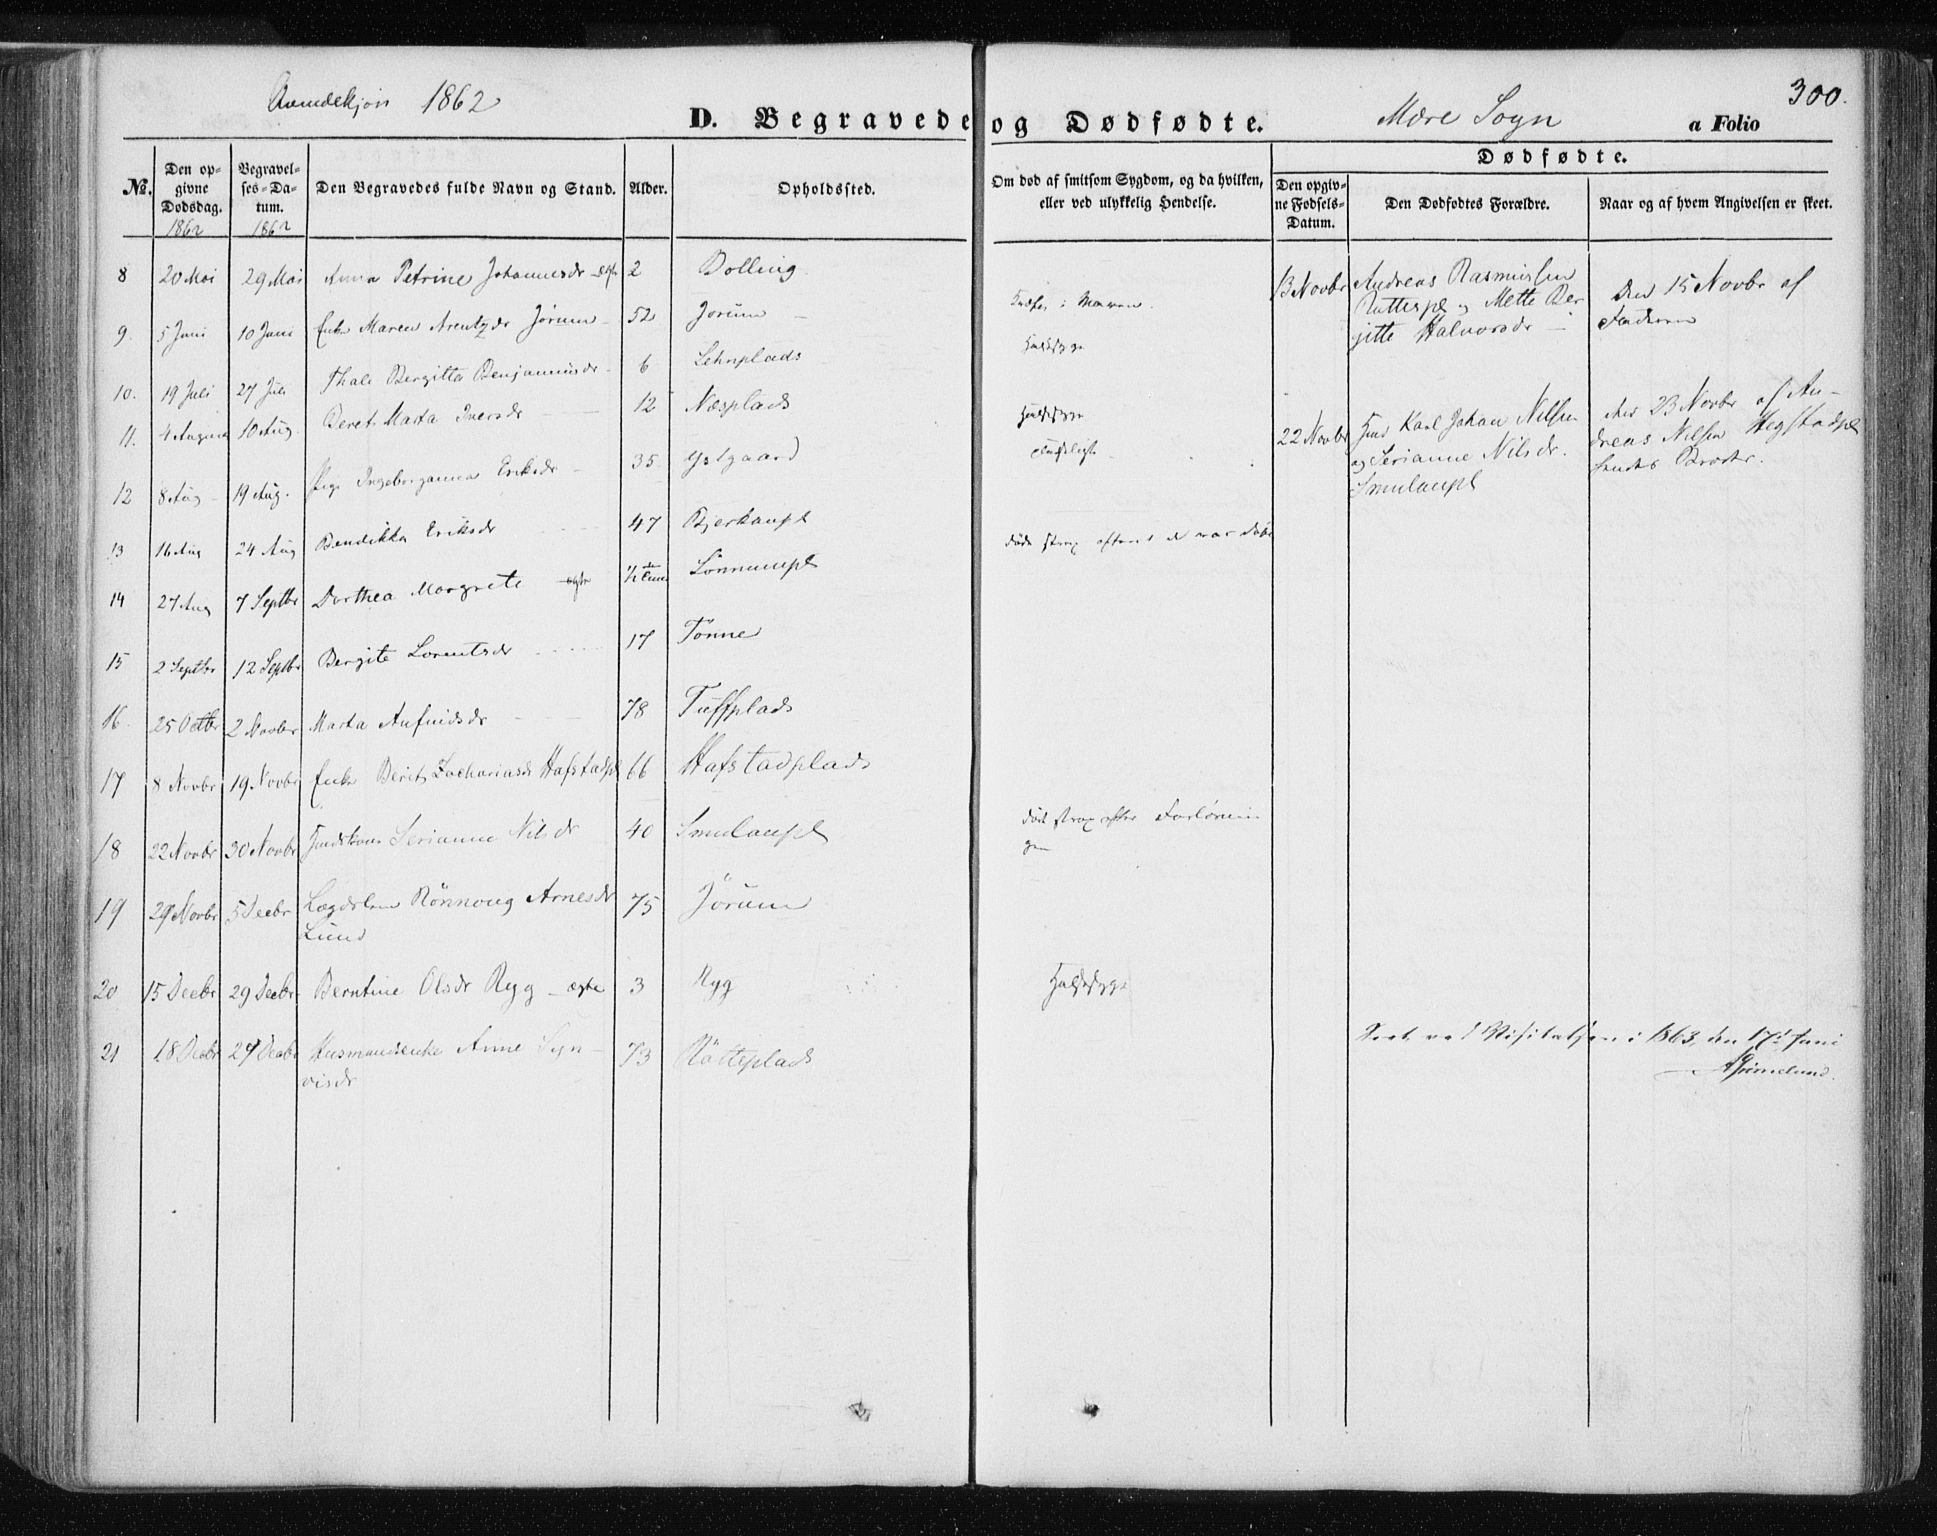 Qvindekjön 1862
300.
D. Begravede og Dødfødte.
Mære Sogn
a Folio
No.
Den opgivne Dødsdag.
1862
Begravelses-Datum.
1862
Den Begravedes fulde Navn og Stand.
Alder.
Opholdssted.
Om død af smitsom Sygdom, og da hvilken, eller ved ulykkelig Hendelse.
Dødfødte.
Den opgivne Fødsels-Datum.
Den Dødfødtes Forældre.
Naar og af hvem Angivelsen er skeet.
8 20 Mai 29 Mai Anna Petrine Johannesdr 2 Bolling
9. 5 Juni 10 Juni Enke Maren Arentzdr Jørum 52 Jorum
10. 19 Juli 27 Juli Thale Bergitta Benjaminsdr 6 Lehnplads
11. 4 August 10 Aug. Beret Marta Iversdr 12 Næsplads
12 8 Aug 19 Aug. Pige Ingeborganna Eriksdr 35. Ystgaard
13 16 Aug 24 Aug Bendikka Eriksdr 47 Bjerkanpl
14 27 Aug 7 Septbr Dorthea Margrete ægte 1/2 Time Sönnanpl
15 2 Septbr 12 Septbr Bergite Lorentsdr 17 Tönne
16. 25 Octbr 2 Novbr Marta Anfindsdr 78 Tuffplads
17 8 Novbr 19 Novbr Enke Beret Zachariasdr Hafstadpl 66 Hafstadplads
18 22 Novbr 30 Novbr Serianne Nilsdr 40 Smulanpl
19 29 Novbr 5 Decbr Lægdslem Rönnoug Arnesdr 75 Jörum
Lund
20 15 Decbr 29 Decbr Berntine Olsdr Ryg - ægte 3 Ryg
21 18 Decbr 29 Decbr Husmandsenke Anne Syn- 73 Rötteplads
visdr
Halssyge
Halssyge
død strax efter at d var døbt
død strax efter Forløsnin-
gen
Halssyge
13 Novbr Andreas Rasmussen
og Mette Ber-
gitte Halvorsdr
Den 15 Novbr af
Faderen
22 Novbr Karl Johan Nilsen
og Serianne Nilsdr.
Smulanpl
den 23 Novbr af An-
dreas Nilsen Hegstadpl
Broder.
Seet ved Visitatsen i 1863, den 17de Juni
AGrimelund.